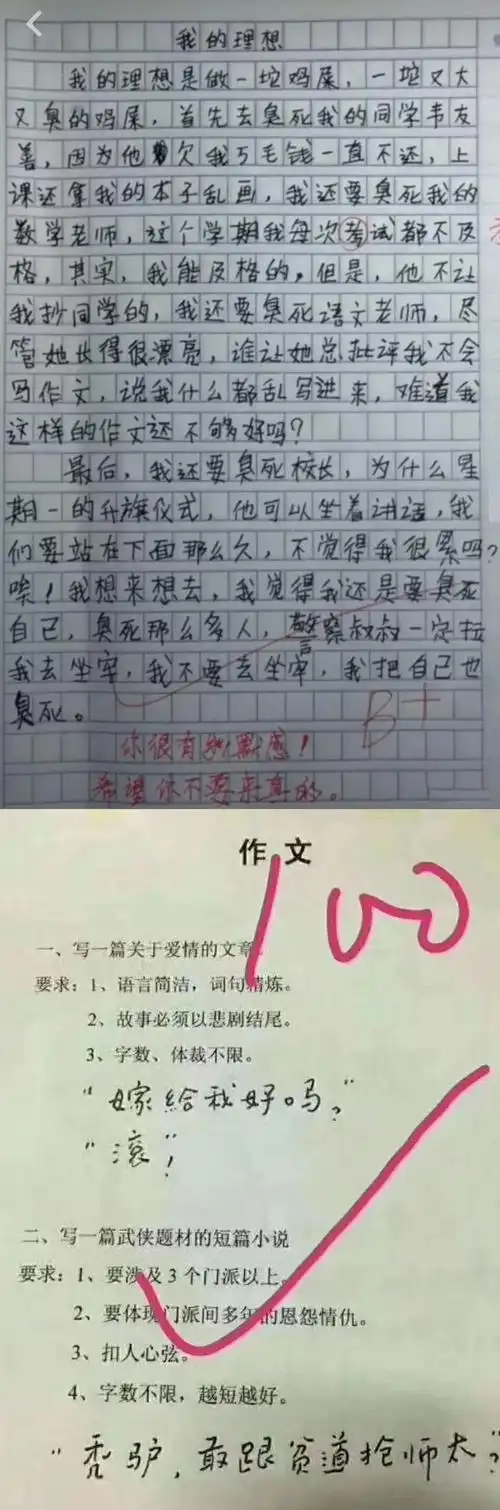 我的理想
我的理想是做一坨鸡屎，一坨又大
又臭的鸡屎，首先去臭死我的同学韦友
善，因为他欠我5毛钱一直不还，上
课还拿我的本子乱画，我还要臭死我的
数学老师，这个学期我每次考试都不及
格，其实，我能及格的，但是，他不让
我抄同学的，我还要臭死语文老师，尽
管她长得很漂亮，谁让她总批评我不会
写作文，说我什么都乱写进来，难道我
这样的作文还不够好吗？
最后，我还要臭死校长，为什么星
期一的升旗仪式，他可以坐着讲话，我
们要站在下面那么久，不觉得我很累吗？
唉！我想来想去，我觉得我还是要臭死
自己，臭死那么多人，警察叔叔一定抓
我去坐牢，我不要去坐牢，我把自己也
臭死。
B+
你很有幽默感！
希望你不要来真的。
作文
100
一、写一篇关于爱情的文章。
要求：1、语言简洁，词句精炼。
2、故事必须以悲剧结尾。
3、字数、体裁不限。
“嫁给我好吗？”
“滚”！
二、写一篇武侠题材的短篇小说
要求：1、要涉及3个门派以上。
2、要体现门派间多年的恩怨情仇。
3、扣人心弦。
4、字数不限，越短越好。
“秃驴，敢跟贫道抢师太？”